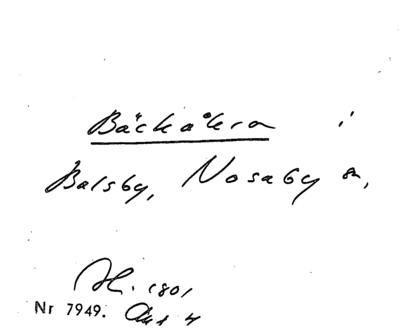 Bäckåkra i
Balsby, Nosaby sn,
1801
Nr 7949. Akt 4